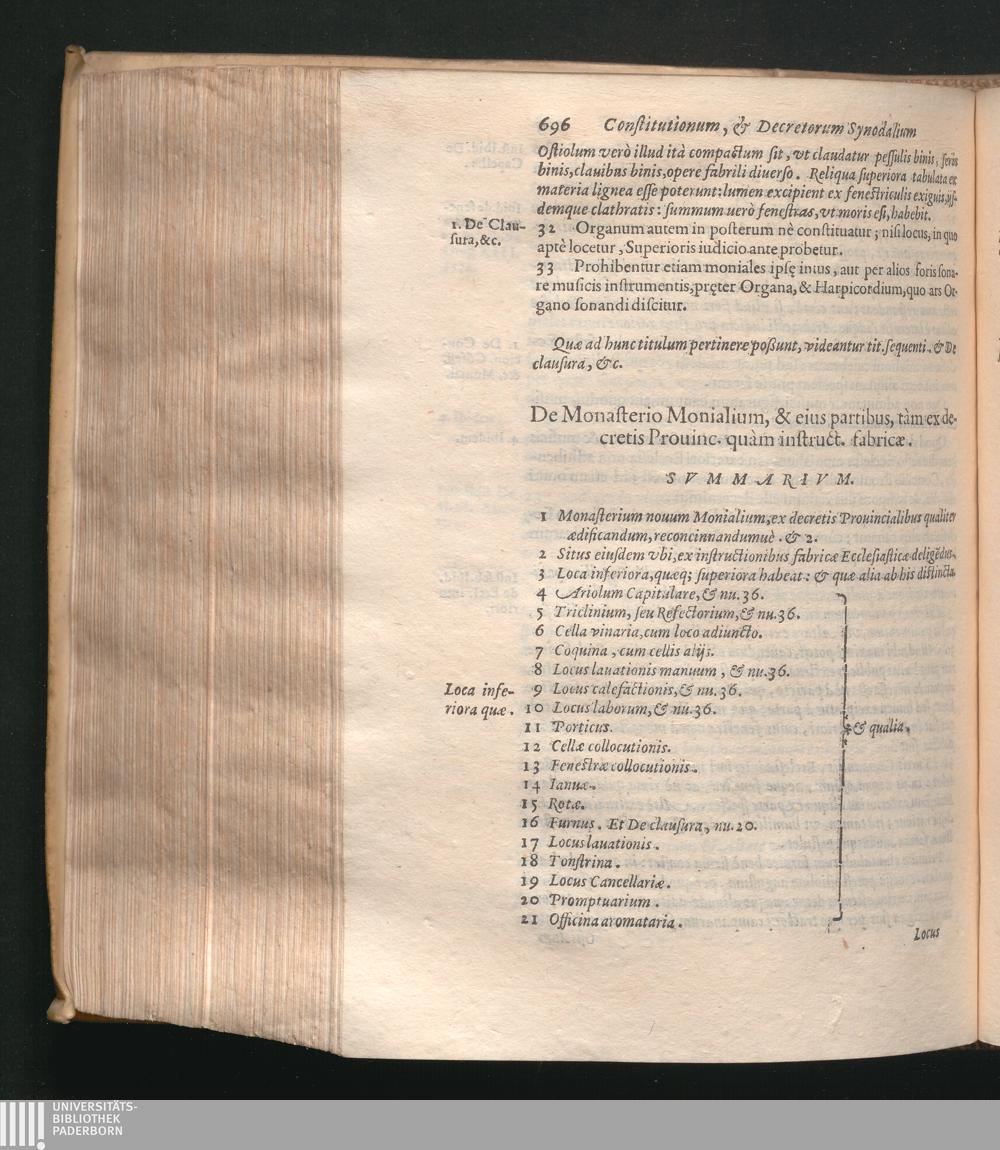 696 Conſtitutionum, & Decretorum Synodalium
Oſtiolum verò illud ità compactum ſit, vt claudatur peſſulis binis, ſeris
binis, clauibus binis, opere fabrili diuerſo. Reliqua ſuperiora tabulata ex
materia lignea eſſe poterunt: lumen excipient ex feneſtriculis exiguis, ijſ-
demque clathratis: ſummum uerò feneſtras, vt moris eſt, habebit.
1. De Clau-
ſura, &c.
32 Organum autem in poſterum nè conſtituatur; niſi locus, in quo
aptè locetur, Superioris iudicio ante probetur.
33 Prohibentur etiam moniales ipſę intus, aut per alios foris ſona-
re muſicis inſtrumentis, pręter Organa, & Harpicordium, quo ars Or-
gano ſonandi diſcitur.
Quæ ad hunc titulum pertinere poßunt, videantur tit. ſequenti. & De
clauſura, &c.
De Monaſterio Monialium, & eius partibus, tàm ex de-
cretis Prouinc. quàm inſtruct. fabricæ.
SVMMARIVM.
1 Monaſterium nouum Monialium, ex decretis Prouincialibus qualiter
ædificandum, reconcinnandumuè. & 2.
2 Situs eiuſdem vbi, ex inſtructionibus fabricæ Eccleſiaſticæ deligēdus.
3 Loca inferiora, quæq; ſuperiora habeat: & quæ alia ab his diſtincta.
4 Ariolum Capitulare, & nu. 36.
5 Triclinium, ſeu Refectorium, & nu. 36.
6 Cella vinaria, cum loco adiuncto.
7 Coquina, cum cellis alijs.
8 Locus lauationis manuum, & nu. 36.
Loca infe-
riora quæ.
9 Locus calefactionis, & nu. 36.
10 Locus laborum, & nu. 36.
11 Porticus.
& qualia.
12 Cellæ collocutionis.
13 Feneſtræ collocutionis.
14 Ianuæ.
15 Rotæ.
16 Furnus. Et De clauſura, nu. 20.
17 Locus lauationis.
18 Tonſtrina.
19 Locus Cancellariæ.
20 Promptuarium.
21 Officina aromataria.
Locus
UNIVERSITÄTS-
BIBLIOTHEK
PADERBORN